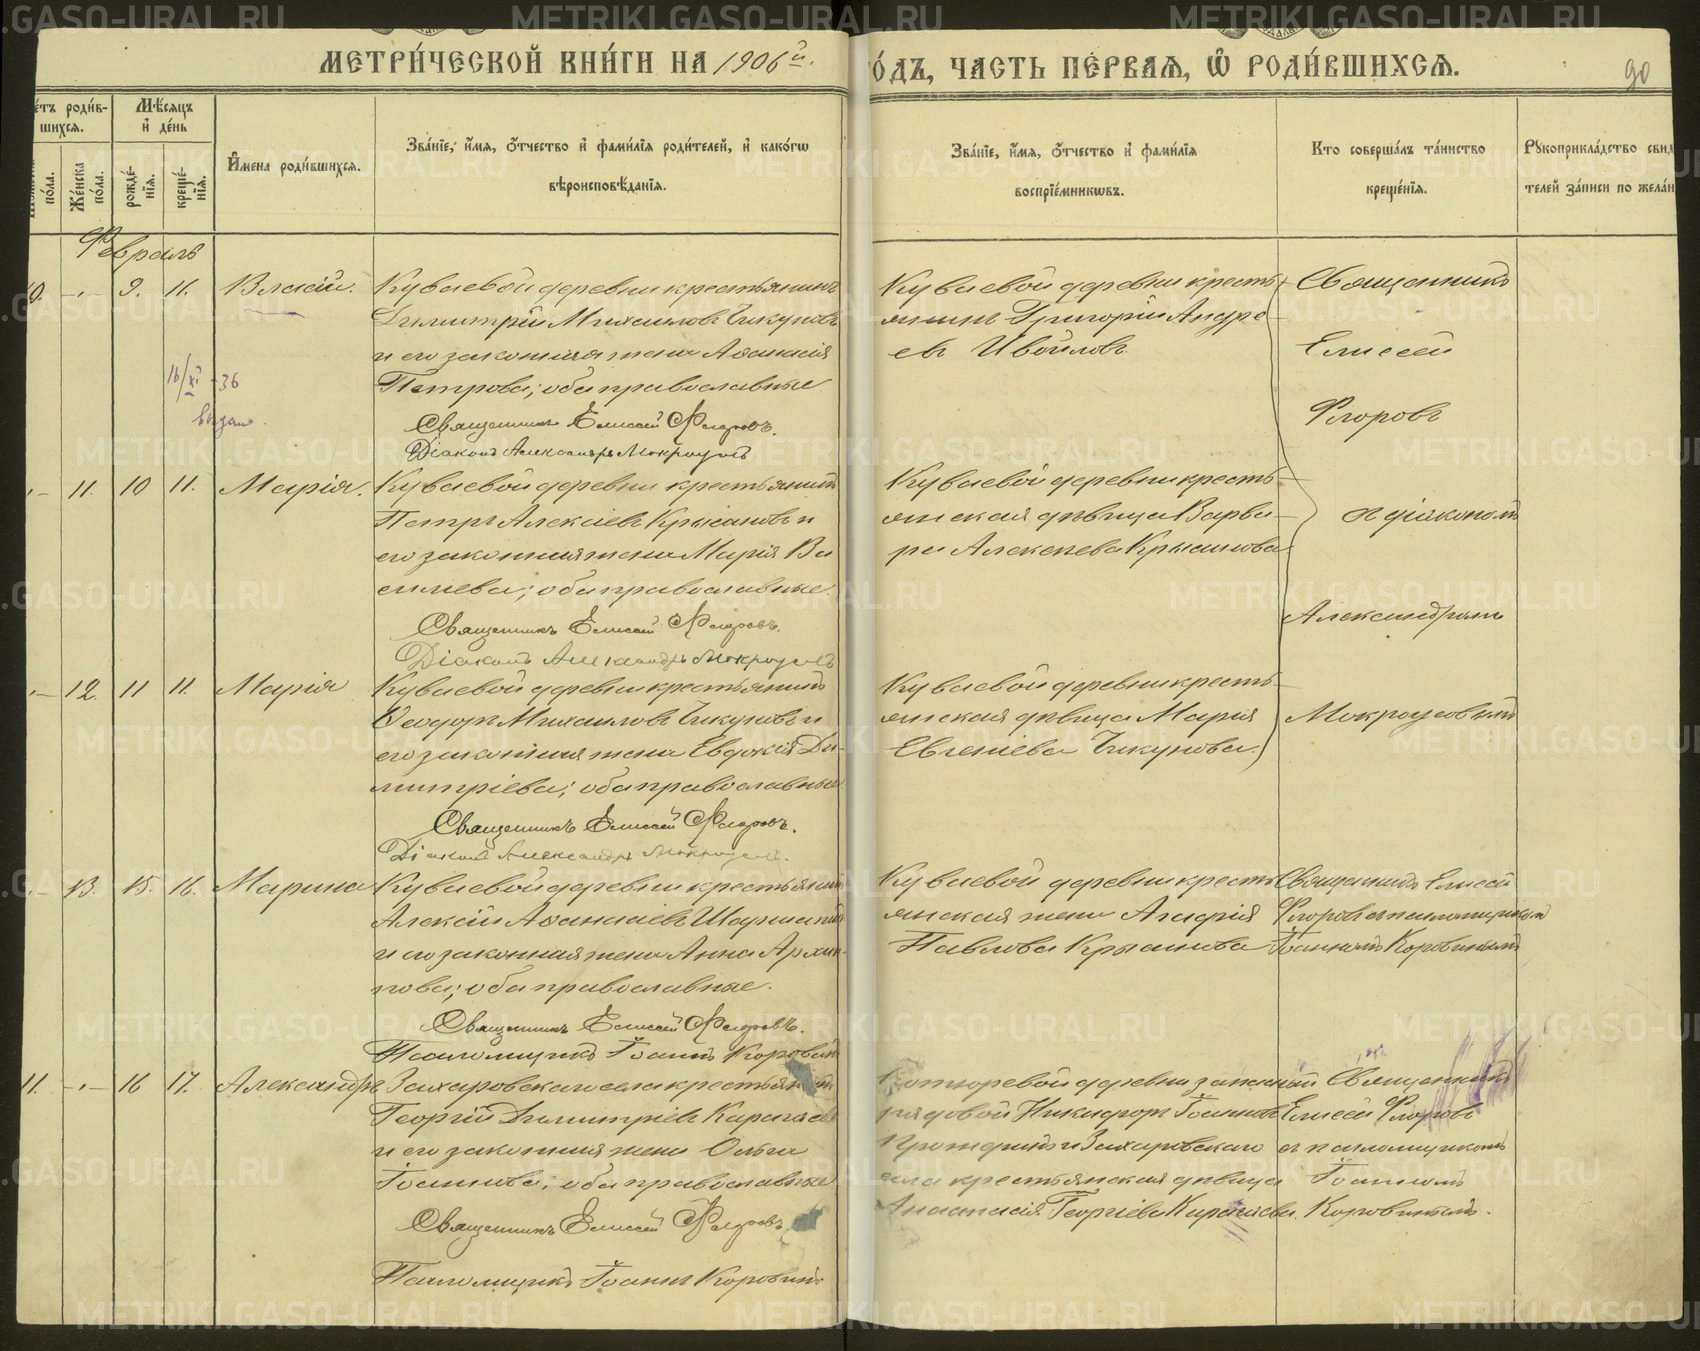 МЕТРИ́ЧЕСКОЙ КНИ́ГИ НА 1906й.
ГО́ДЪ, ЧАСТЬ ПЕ́РВАЯ, Ѡ҆ РОДИ́ВШИХСЯ.
90
Сче́тъ роди́в-
шихся.
Мѣ́сяцъ
и҆ де́нь
Муже́ска
по́ла.
Же́нска
по́ла.
рожде́-
нїя.
креще́-
нїя.
И҆мена роди́вшихся.
Зва́нїе, и҆́мя, ѻ҆́тчество и҆ фами́лїя роди́телей, и҆ како́гѡ
вѣроисповѣ́данїя.
Зва́нїе, и҆́мя, ѻ҆́тчество и҆ фами́лїя
воспрїе́мникѡвъ.
Кто соверша́лъ та́инство
креще́нїя.
Рꙋкоприкла́дство свид
телей за́писи по жела́н
Февраль
10. -"- 9. 11. Власій.
Куваевой деревни крестьянинъ
Димитрій Михаиловъ Чикуновъ
и его законная жена Аѳанасія
Петрова; оба православные
Священникъ Елисей Флоровъ.
Діаконъ Александръ Мокроусовъ
16/XI - 36
выдано.
Куваевой деревни кресть-
янинъ Григорій Андре-
евъ Ивойловъ
Священникъ
Елисей
Флоровъ
съ діакономъ
Александромъ
Мокроусовымъ
-"- 11. 10 11. Марія.
Куваевой деревни крестьянинъ
Петръ Алексіевъ Крысановъ и
его законная жена Марія Ва
силиева; оба православные.
Священникъ Елисей Флоровъ.
Діаконъ Александръ Мокроусовъ
Куваевой деревни кресть-
янская дѣвица Варва-
ра Алексѣева Крысанова
-"- 12. 11 11. Марія
Куваевой деревни крестьянинъ
Ѳеодоръ Михаиловъ Чикуновъ и
его законная жена Евдокія Ди-
митріева; оба православные
Священникъ Елисей Флоровъ.
Діаконъ Александръ Мокроусовъ.
Куваевой деревни кресть-
янская дѣвица Марія
Евгеніева Чикунова.
-"- 13. 15. 16. Марина
Куваевой деревни крестьянинъ
Алексій Аѳанасіевъ
и его законная жена Анна Архип-
пова; оба православные.
Священникъ Елисей Флоровъ.
Псаломщикъ Іоаннъ Коровинъ
Куваевой деревни кресть
янская жена Агафія
Павлова Крысанова
Священникъ Елисей
Флоровъ съ псаломщикомъ
Іоанномъ Коровинымъ
11. -"- 16 17. Александръ
Захаровскаго села крестьянинъ
Георгій Димитріевъ Карагаевъ
и его законная жена Ольга
Іоаннова; оба православные
Священникъ Елисей Флоровъ.
Псаломщикъ Іоаннъ Коровинъ
деревни запасный
рядовой Никифоръ Іоанновъ
и Захаровскаго
села крестьянская дѣвица
Анастасія Георгіева Карагаева.
Священникъ
Елисей Флоровъ
съ псаломщикомъ
Іоанномъ
Коровинымъ.
METRIKI.GASO-URAL.RU